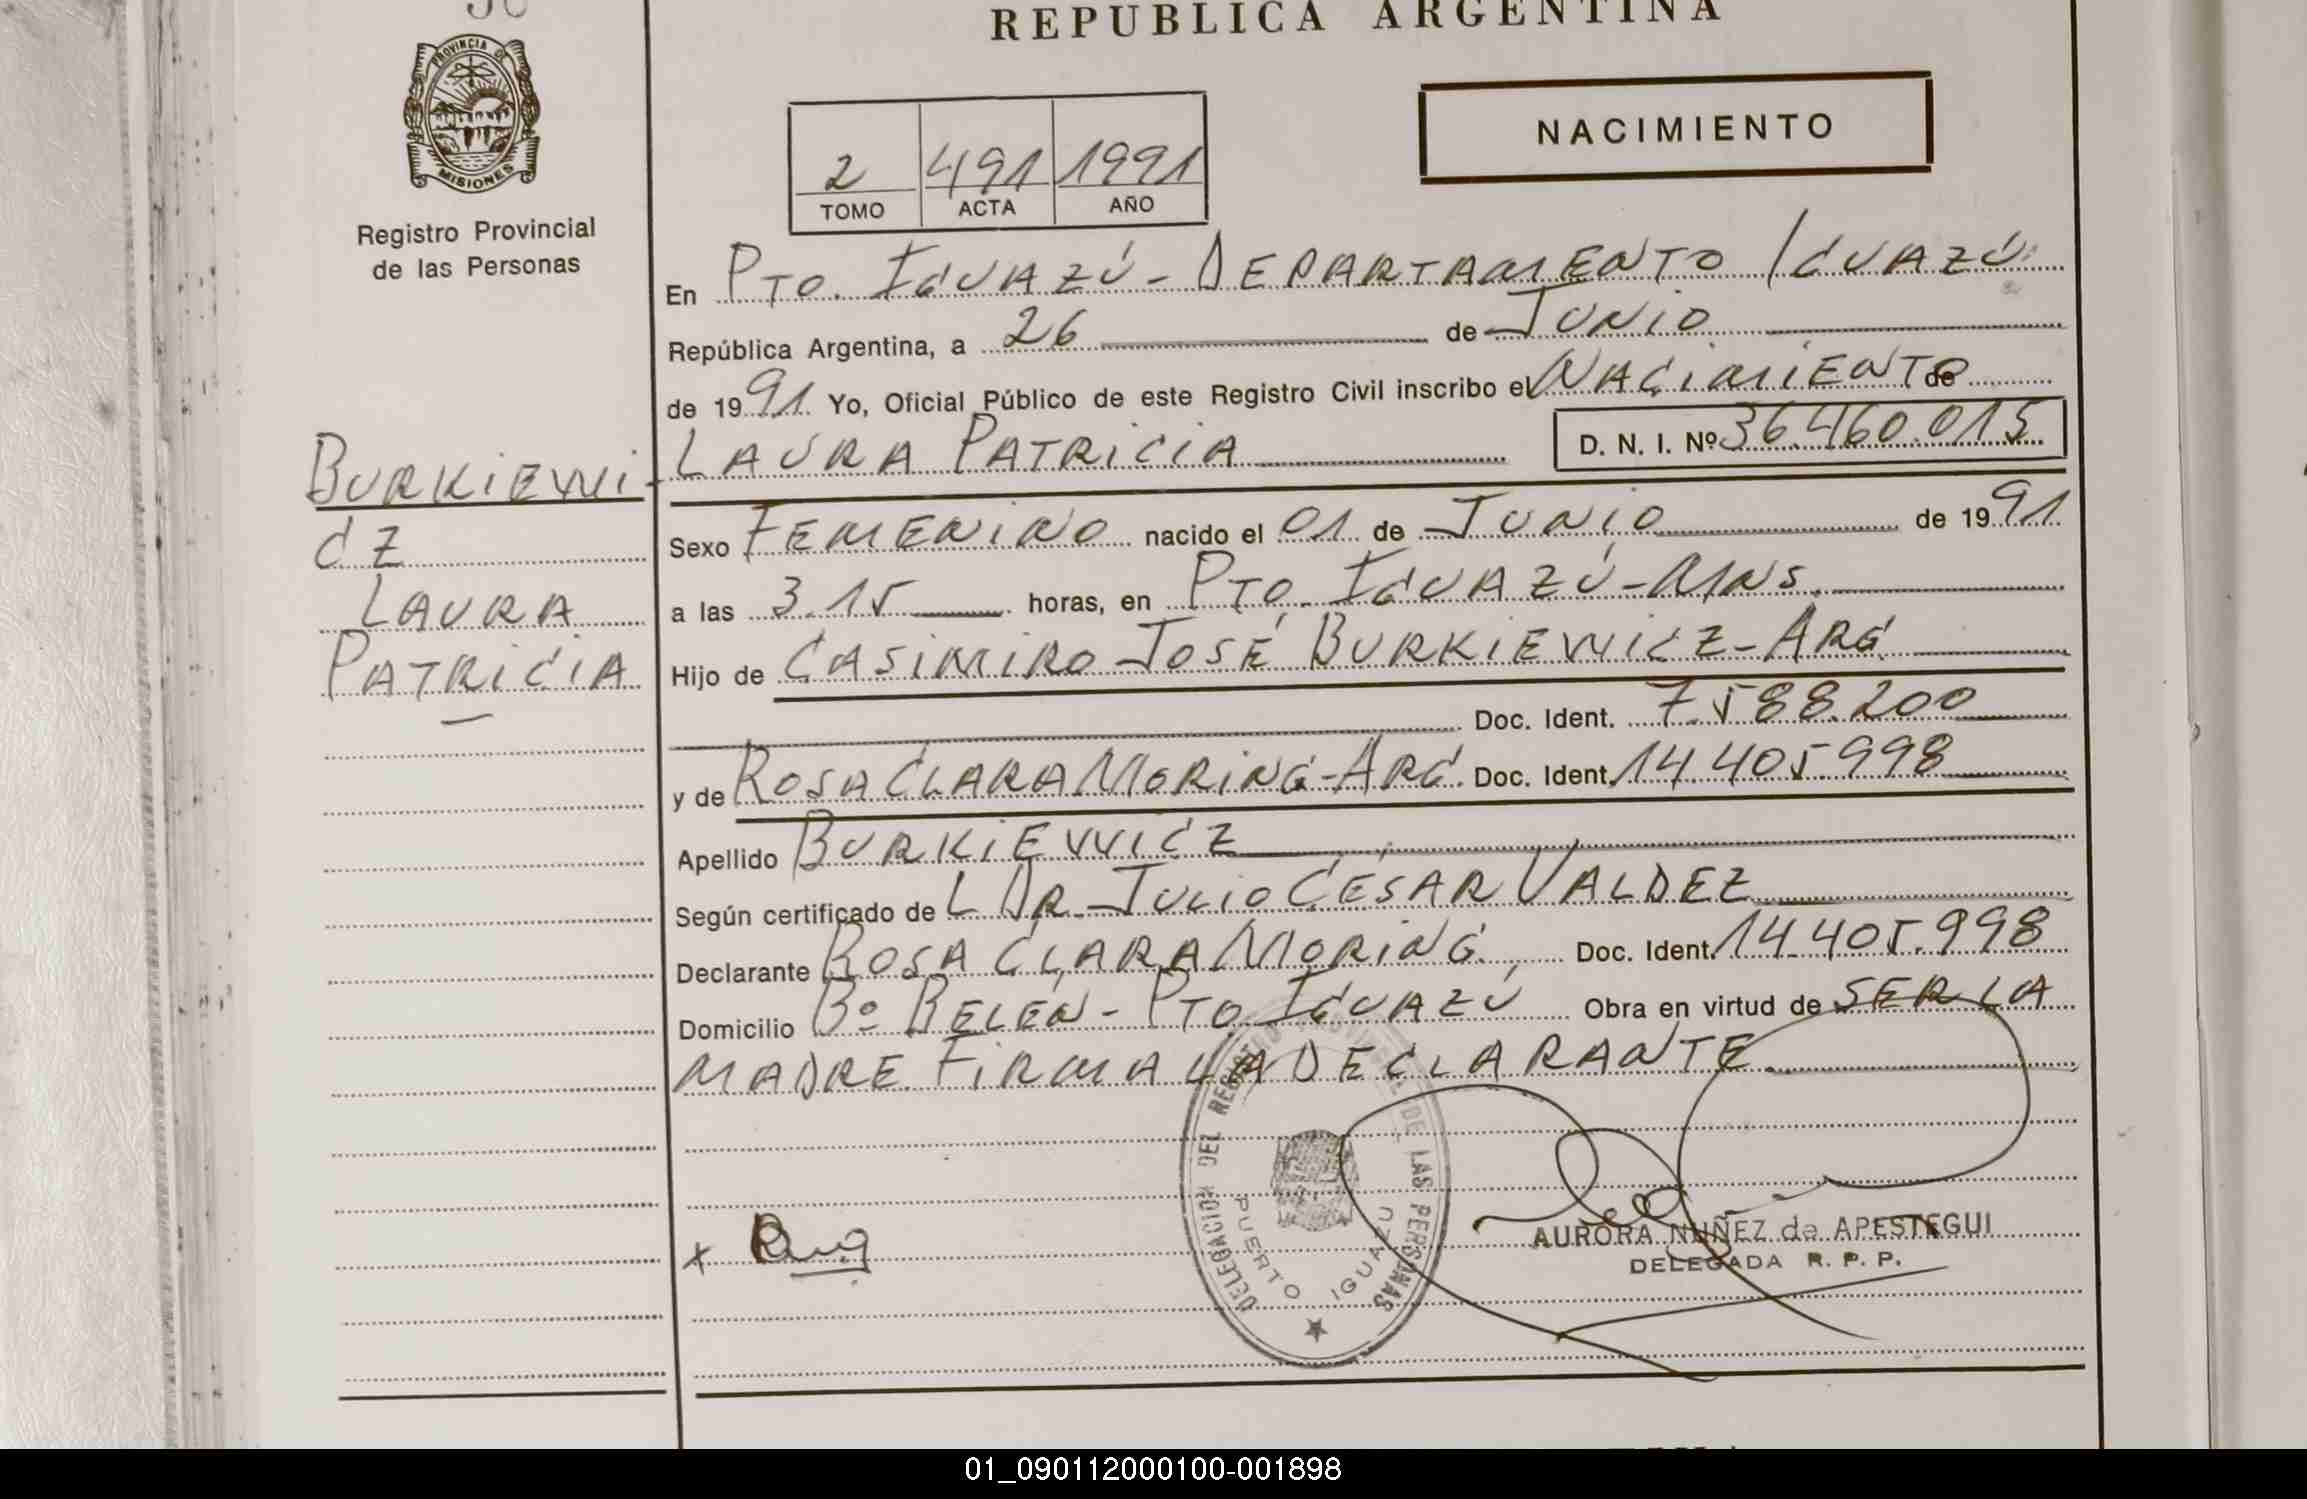 REPUBLICA ARGENTINA
PROVINCIA DE
MISIONES
Registro Provincial
de las Personas
NACIMIENTO
2 491 1991
TOMO ACTA AÑO
En PTO. IGUAZÚ - DEPARTAMENTO IGUAZÚ
República Argentina, a 26 de JUNIO
de 1991 Yo, Oficial Público de este Registro Civil inscribo el NACIMIENTO de
LAURA PATRICIA D. N. I. Nº 36.460.015
BURKIEWI-
CZ
LAURA
PATRICIA
Sexo FEMENINO nacido el 01 de JUNIO de 1991
a las 3.15 horas, en PTO. IGUAZÚ - MNS.
Hijo de CASIMIRO JOSÉ BURKIEWICZ - ARG.
Doc. Ident. 7.588.200
y de ROSA CLARA MORING - ARG. Doc. Ident. 14.405.998
Apellido BURKIEWICZ
Según certificado de L DR. JULIO CÉSAR VALDEZ
Declarante ROSA CLARA MORING. Doc. Ident. 14.405.998
Domicilio Bº BELÉN - PTO IGUAZÚ Obra en virtud de SER LA
MADRE. FIRMA LA DECLARANTE
DELEGACION DEL REGISTRO DE LAS PERSONAS
PUERTO IGUAZU
x
AURORA NUÑEZ de APESTEGUI
DELEGADA R. P. P.
01_090112000100-001898